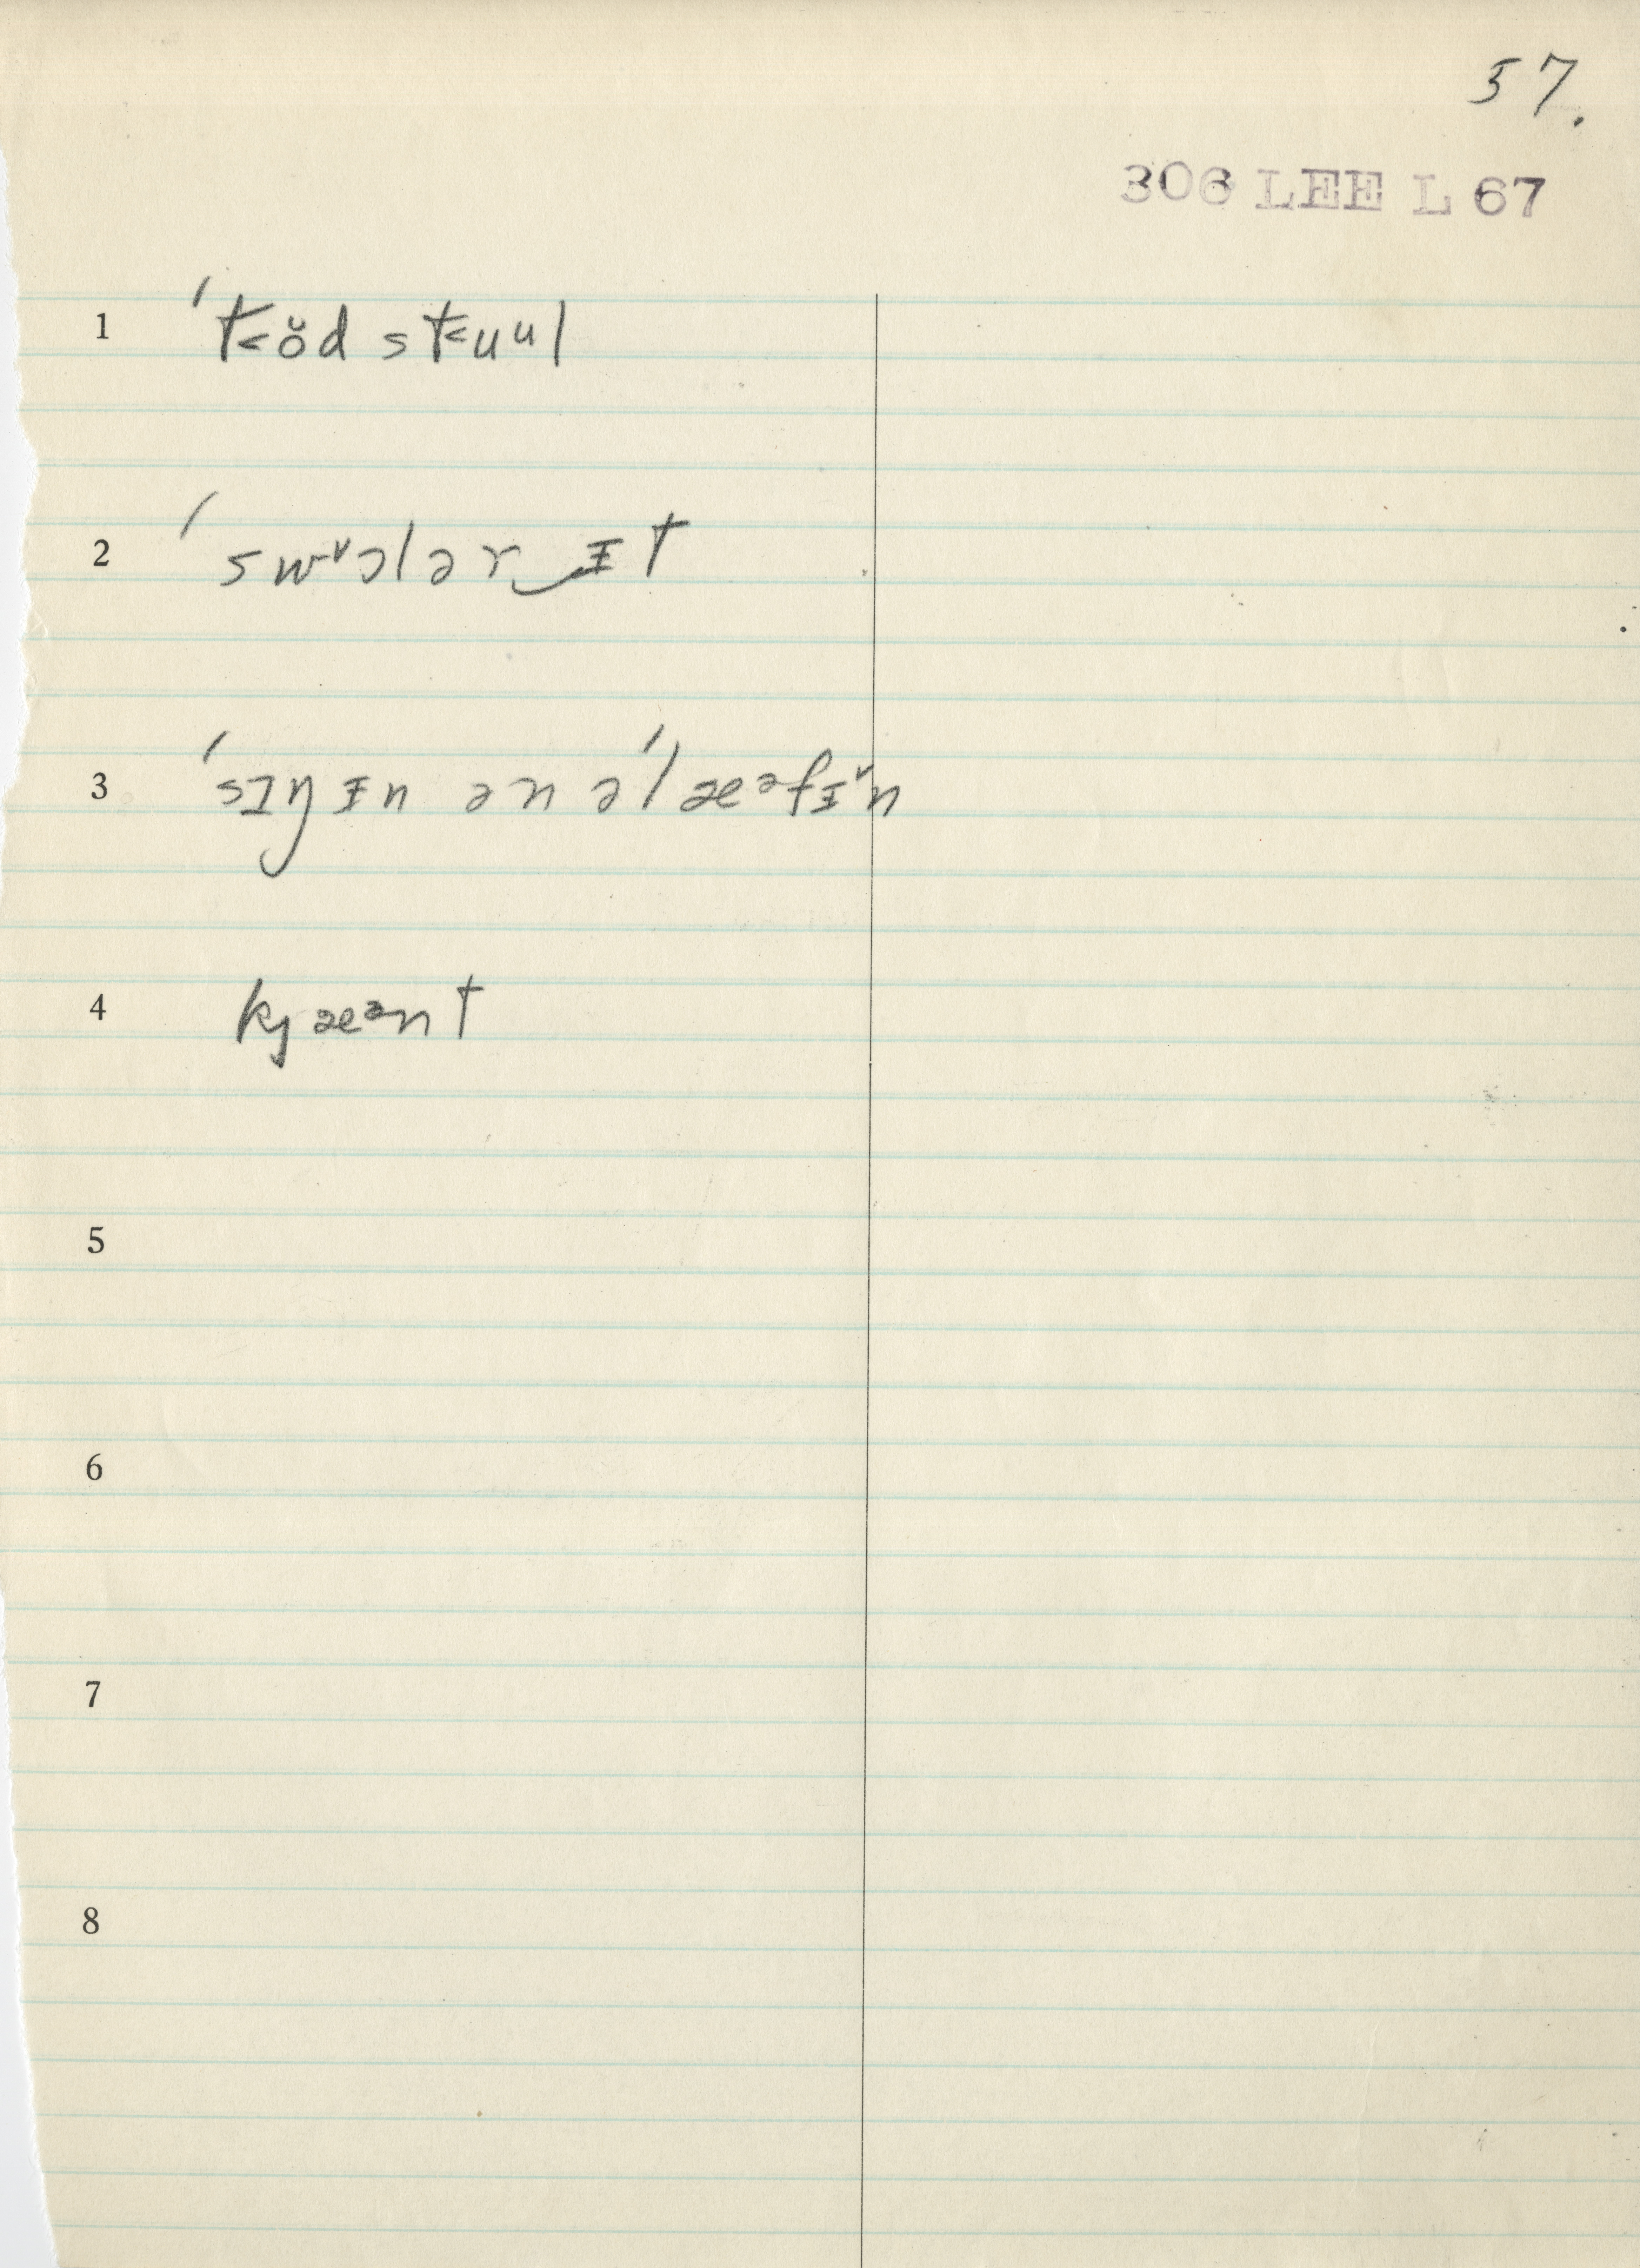 57.
306 LEE L 67
1 ˈt˂ŏd st˂uᵘl
2 ˈswᵛɔlər‿ɪ̵t
3 ˈsɪŋɪ̵n ən əˈlæᵊfɪ̵ᵛn
4 kjæᵊnt
5
6
7
8